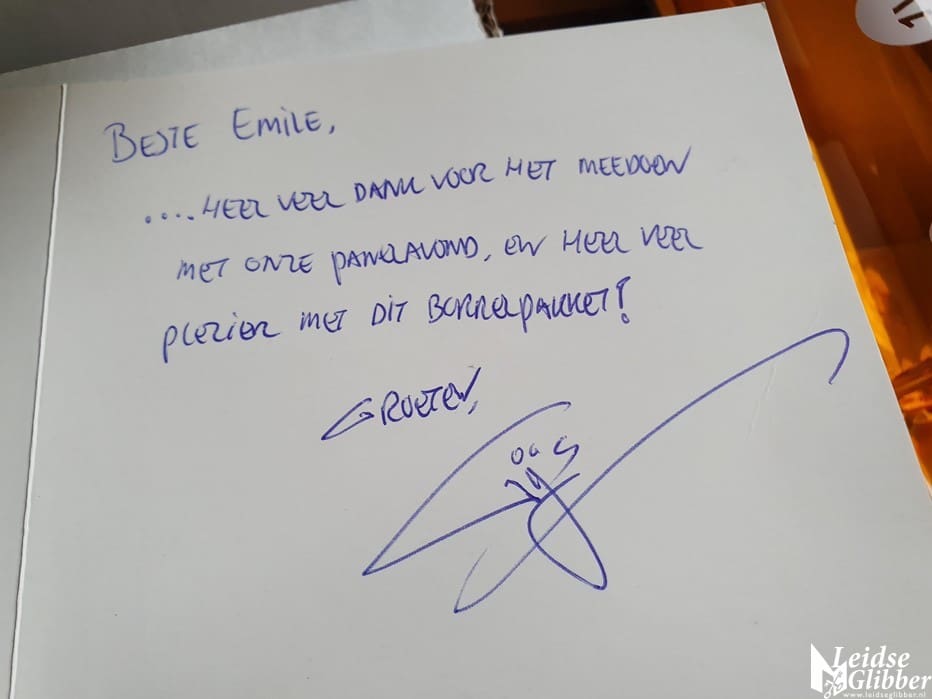 BESTE EMILE,
....HEEL VEEL DANK VOOR HET MEEDOEN
MET ONZE PANELAVOND, EN HEEL VEEL
PLEZIER MET DIT BORRELPAKKET!
GROETEN,
Leidse
Glibber
www.leidseglibber.nl